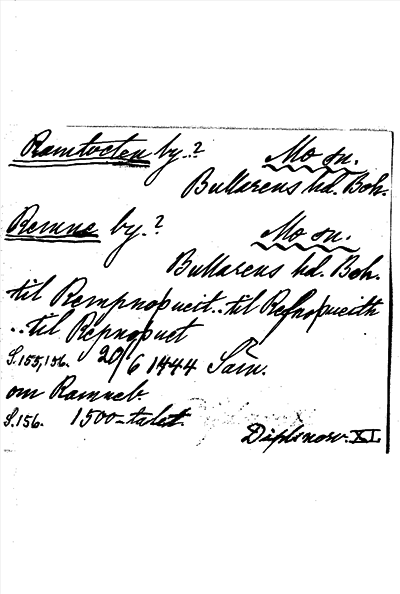 Ramtvcten by.?
Mo sn.
Bullarens hd. Boh.
Remne by.?
Mo sn.
Bullarens hd. Boh.
til Rempnoþueit..til Refnoþueith
..til Repnoþuet
S.155,156. 20/6 1444 Sam.
om Ramneb.
S.156. 1500-talet.
Diplnorv. XI.